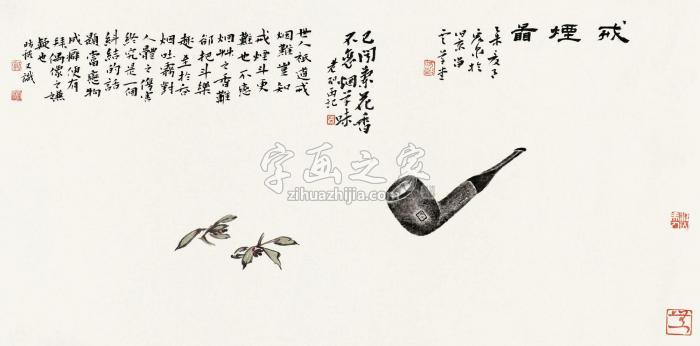 戒煙
已聞素花香
烟草味
世人祇道戒
烟難豈知
戒煙斗更
難也不
烟草之香難
卻把斗樂
趣至於吞
烟吐霧對
人體之傷害
終究是一個
糾結的話
題當應物
成癖便有
拜偶像之嫌
疑也
字画之家
zihuazhijia.com